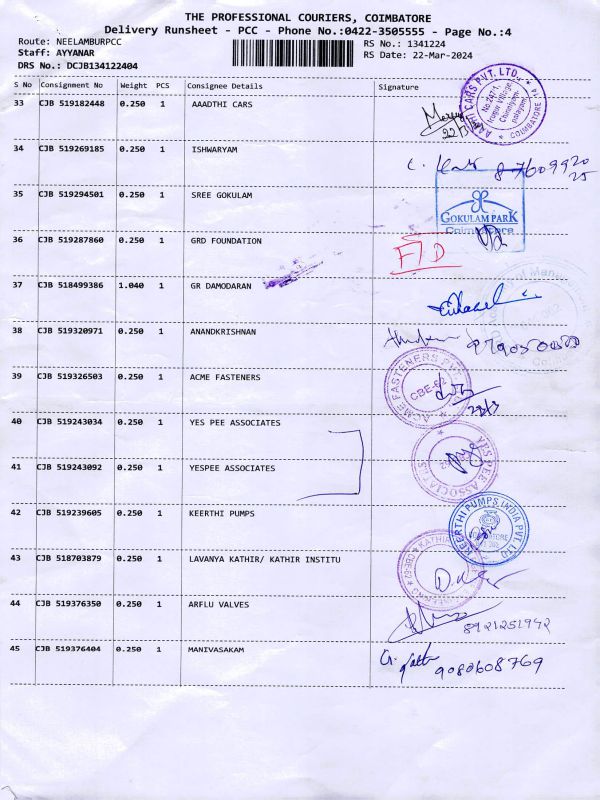 THE PROFESSIONAL COURIERS, COIMBATORE
Delivery Runsheet - PCC - Phone No.:0422-3505555 - Page No.:4
Route: NEELAMBURPCC RS No.: 1341224
Staff: AYYANAR RS Date: 22-Mar-2024
DRS No.: DCJB134122404
S No Consignment No Weight PCS Consignee Details Signature
33 CJB 519182448 0.250 1 AAADTHI CARS
AADHI CARS PVT. LTD.
COIMBATORE
34 CJB 519269185 0.250 1 ISHWARYAM
35 CJB 519294501 0.250 1 SREE GOKULAM
GOKULAM PARK
Coimbatore
36 CJB 519287860 0.250 1 GRD FOUNDATION
37 CJB 518499386 1.040 1 GR DAMODARAN
38 CJB 519320971 0.250 1 ANANDKRISHNAN
39 CJB 519326503 0.250 1 ACME FASTENERS
ACME FASTENERS
CBE-62
40 CJB 519243034 0.250 1 YES PEE ASSOCIATES
41 CJB 519243092 0.250 1 YESPEE ASSOCIATES
YESPEE ASSOCIATES
42 CJB 519239605 0.250 1 KEERTHI PUMPS
KEERTHI PUMPS INDIA PVT. LTD
43 CJB 518703879 0.250 1 LAVANYA KATHIR/ KATHIR INSTITU
44 CJB 519376350 0.250 1 ARFLU VALVES
8921251992
45 CJB 519376404 0.250 1 MANIVASAKAM
9080608769